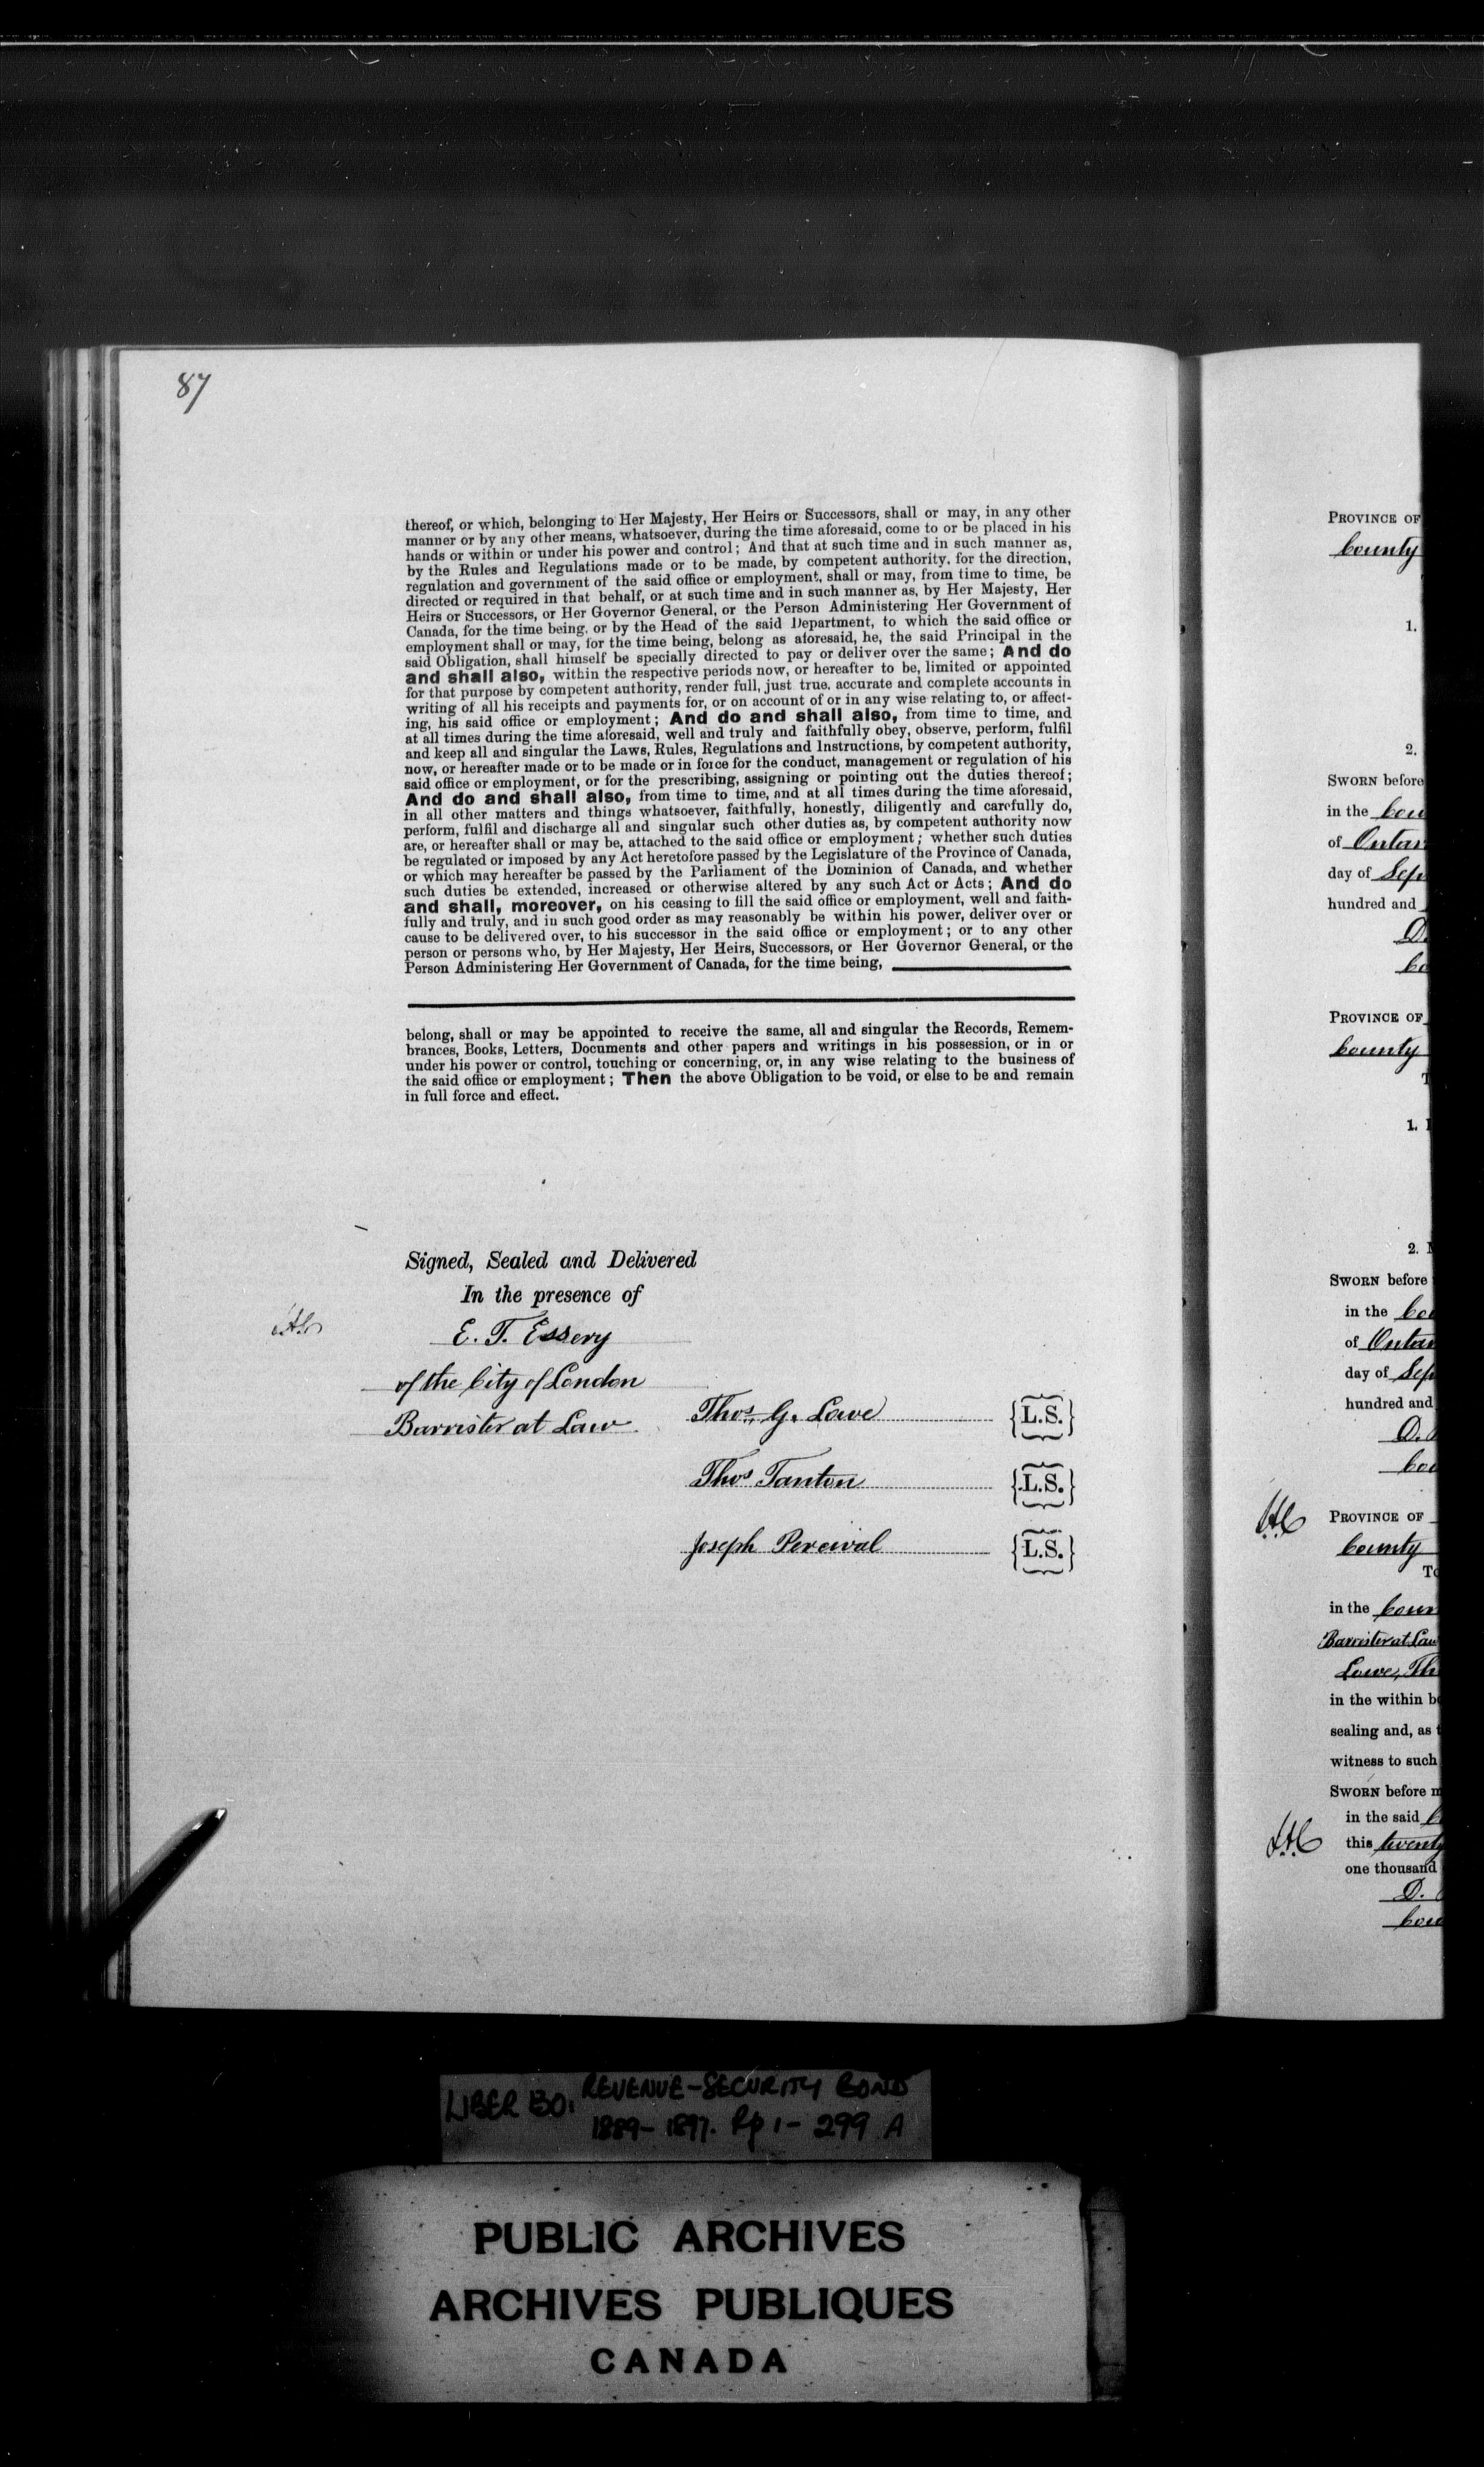 87
thereof, or which, belonging to Her Majesty, Her Heirs or Successors, shall or may, in any other
manner or by any other means, whatsoever, during the time aforesaid, come to or be placed in his
hands or within or under his power and control; And that at such time and in such manner as,
by the Rules and Regulations made or to be made, by competent authority, for the direction,
regulation and government of the said office or employment, shall or may, from time to time, be
directed or required in that behalf, or at such time and in such manner as, by Her Majesty, Her
Heirs or Successors, or Her Governor General, or the Person Administering Her Government of
Canada, for the time being, or by the Head of the said Department, to which the said office or
employment shall or may, for the time being, belong as aforesaid, he, the said Principal in the
said Obligation, shall himself be specially directed to pay or deliver over the same; And do
and shall also, within the respective periods now, or hereafter to be, limited or appointed
for that purpose by competent authority, render full, just true, accurate and complete accounts in
writing of all his receipts and payments for, or on account of or in any wise relating to, or affect-
ing, his said office or employment; And do and shall also, from time to time, and
at all times during the time aforesaid, well and truly and faithfully obey, observe, perform, fulfil
and keep all and singular the Laws, Rules, Regulations and Instructions, by competent authority,
now, or hereafter made or to be made or in force for the conduct, management or regulation of his
said office or employment, or for the prescribing, assigning or pointing out the duties thereof;
And do and shall also, from time to time, and at all times during the time aforesaid,
in all other matters and things whatsoever, faithfully, honestly, diligently and carefully do,
perform, fulfil and discharge all and singular such other duties as, by competent authority now
are, or hereafter shall or may be, attached to the said office or employment; whether such duties
be regulated or imposed by any Act heretofore passed by the Legislature of the Province of Canada,
or which may hereafter be passed by the Parliament of the Dominion of Canada, and whether
such duties be extended, increased or otherwise altered by any such Act or Acts; And do
and shall, moreover, on his ceasing to fill the said office or employment, well and faith-
fully and truly, and in such good order as may reasonably be within his power, deliver over or
cause to be delivered over, to his successor in the said office or employment; or to any other
person or persons who, by Her Majesty, Her Heirs, Successors, or Her Governor General, or the
Person Administering Her Government of Canada, for the time being,
belong, shall or may be appointed to receive the same, all and singular the Records, Remem-
brances, Books, Letters, Documents and other papers and writings in his possession, or in or
under his power or control, touching or concerning, or, in any wise relating to the business of
the said office or employment; Then the above Obligation to be void, or else to be and remain
in full force and effect.
Signed, Sealed and Delivered
In the presence of
E. T. Essery
of the City of London
Barrister at Law
Thos. G. Lowe {L.S.}
Thos Tanton {L.S.}
Joseph Percival {L.S.}
PROVINCE OF
County
1.
2.
SWORN before
in the
of
day of
hundred and
D.
PROVINCE OF
County
1.
2.
SWORN before
in the
of
day of
hundred and
D.
PROVINCE OF
County
in the
Barrister at Law
Lowe,
in the within
sealing and, as
witness to such
SWORN before
in the said
this
one thousand
D.
LIBER BO. REVENUE-SECURITY BOND
1889-1897. Pp 1-299 A
PUBLIC ARCHIVES
ARCHIVES PUBLIQUES
CANADA